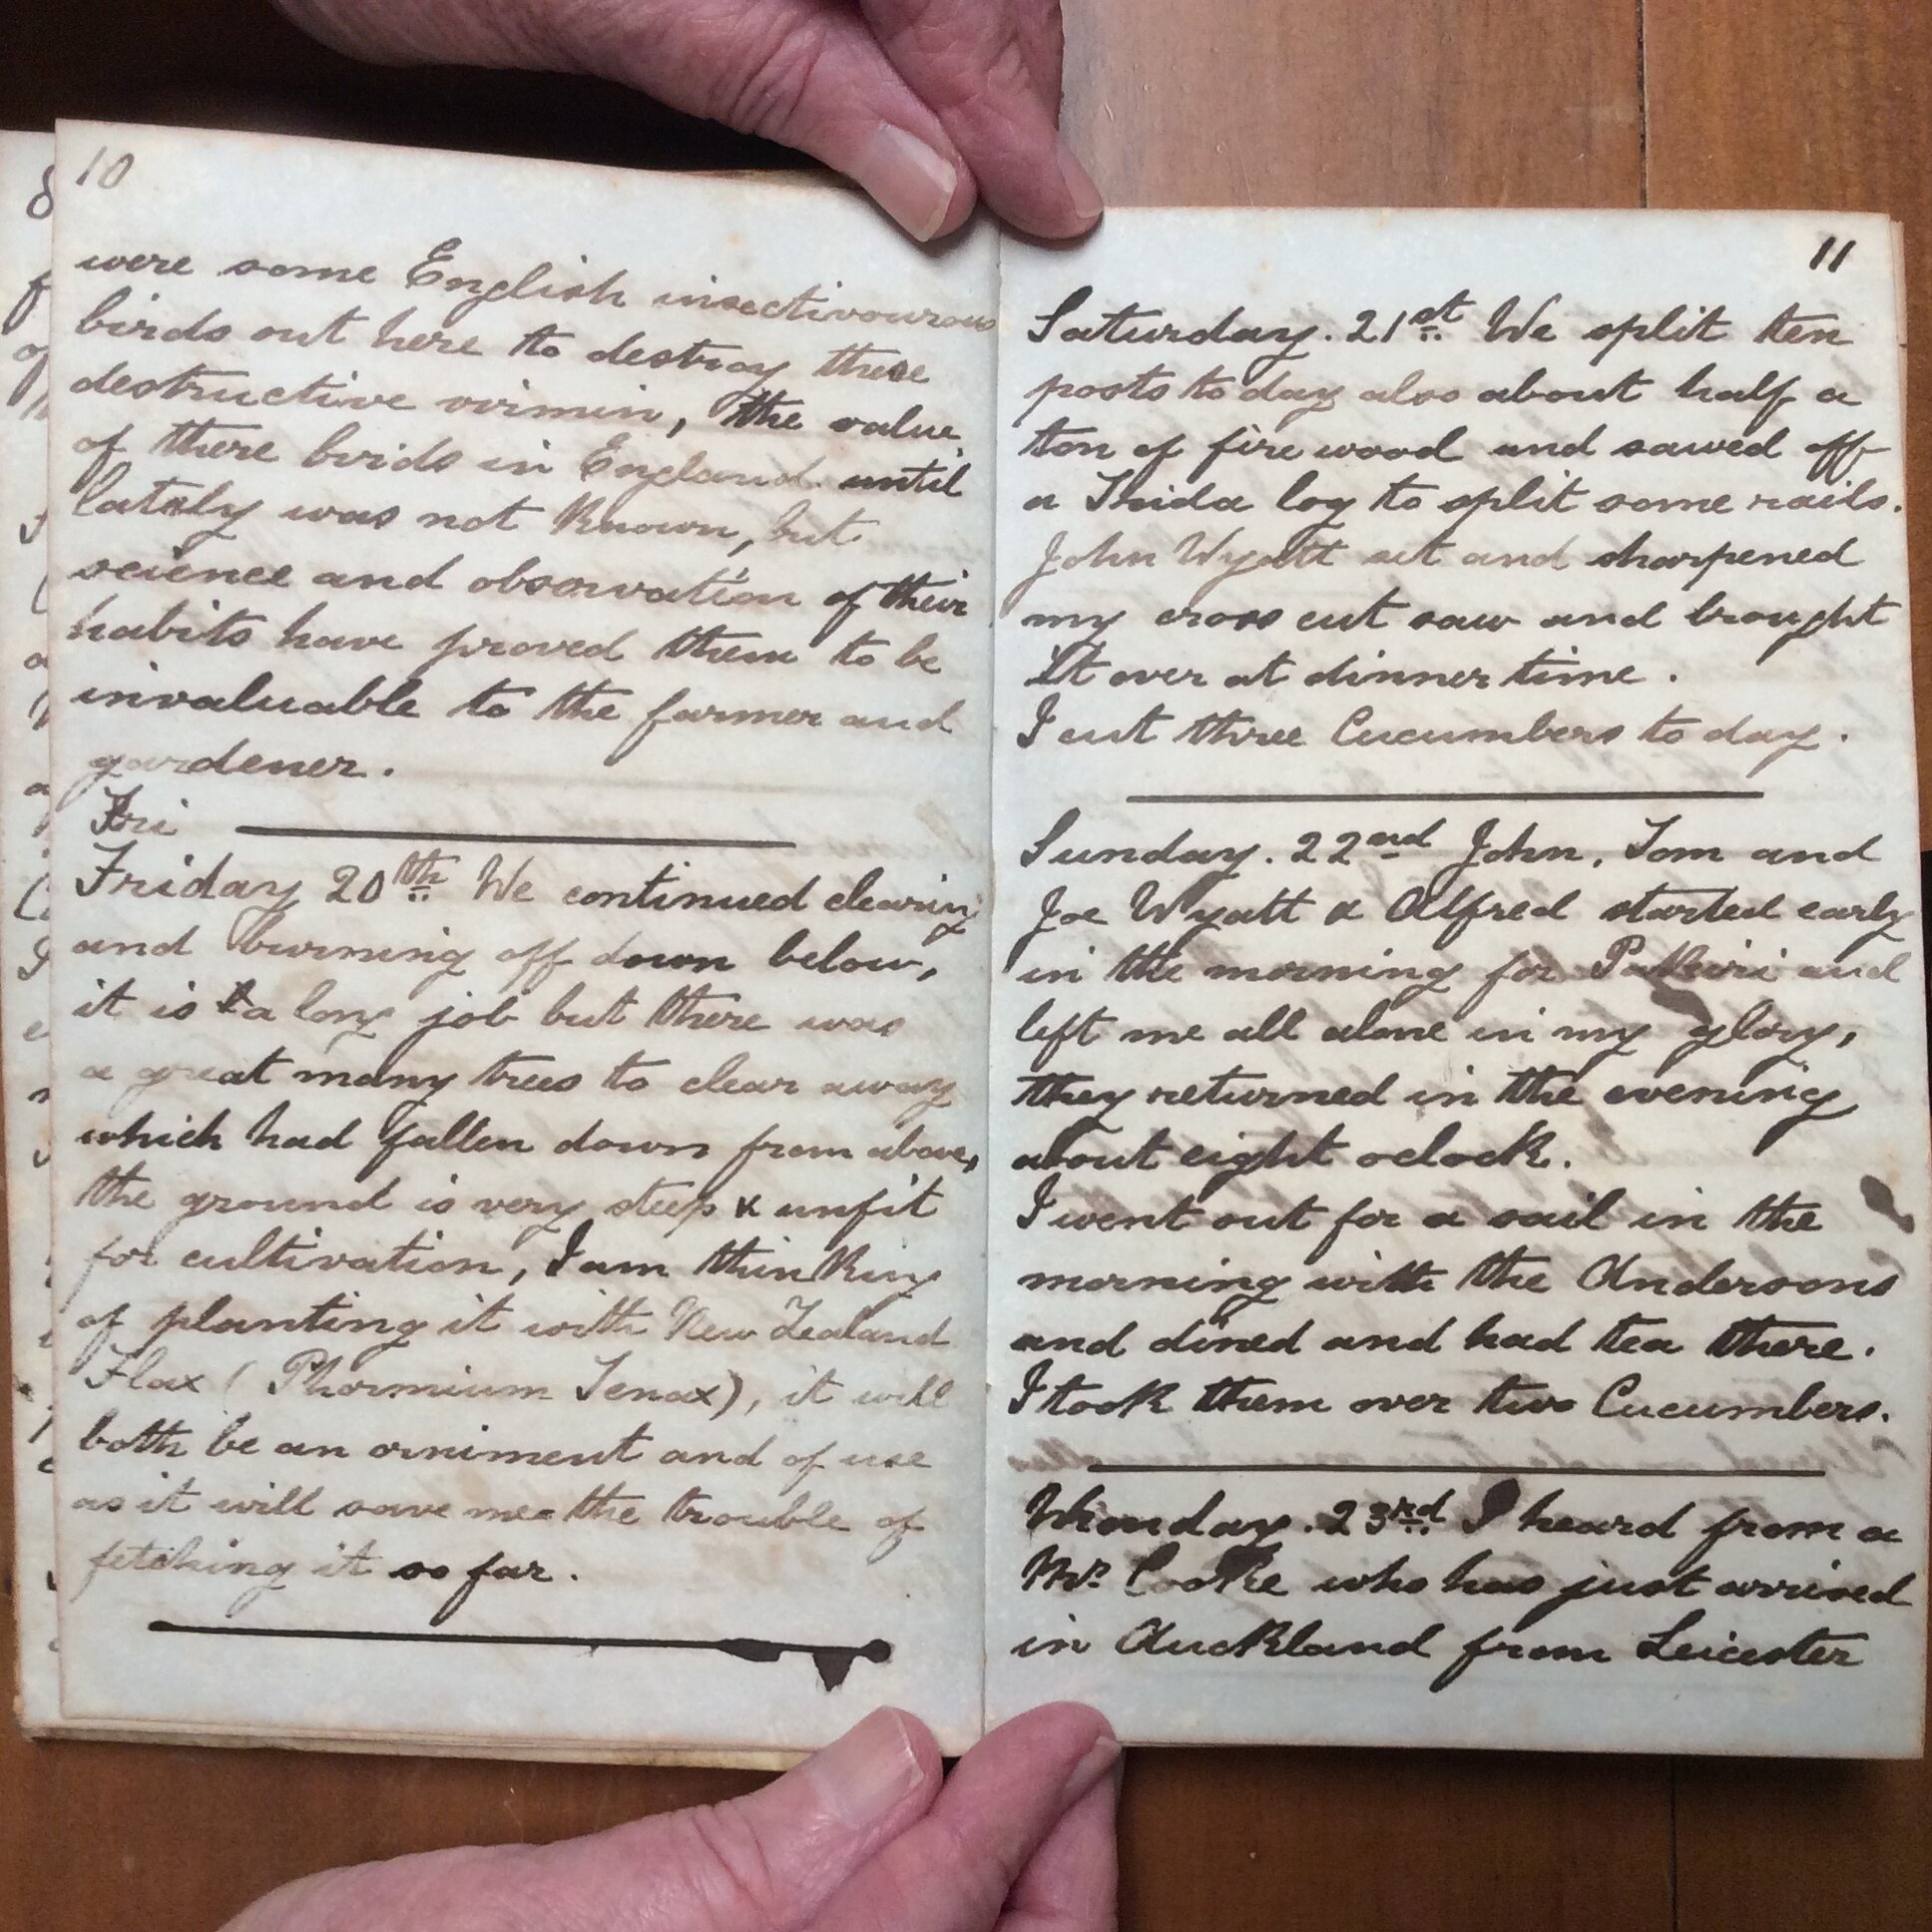 10
were some English insectivourous
birds out here to destroy these
destructive virmin, the value
of there birds in England until
lately was not known, but
science and observation of their
habits have proved them to be
invaluable to the farmer and
gardener.
Fri
Friday 20th We continued clearing
and burning off down below,
it is a long job but there was
a great many trees to clear away
which had fallen down from above,
the ground is very steep & unfit
for cultivation, I am thinking
of planting it with New Zealand
Flax (Phormium Tenax), it will
both be an orniment and of use
as it will save me the trouble of
fetching it so far.
11
Saturday. 21st We split ten
posts to day also about half a
ton of fire wood and sawed off
a log to split some rails.
John Wyatt set and sharpened
my cross cut saw and brought
It over at dinner time.
I cut three Cucumbers to day.
Sunday. 22nd John, Tom and
Joe Wyatt & Alfred started early
in the morning for Pakiri and
left me all alone in my glory,
they returned in the evening
about eight oclock.
I went out for a sail in the
morning with the Andersons
and dined and had tea there.
I took them over two Cucumbers.
Monday. 23rd I heard from a
Mr. Cooke who has just arrived
in Auckland from Leicester
8